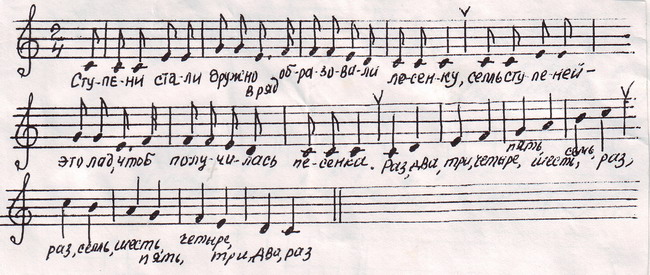 2
4
Сту-пе-ни ста-ли дружно в ряд об-ра-зо-ва-ли ле-сен-ку, семь сту-пе-ней-
это лад, чтоб полу-чи-лась пе-сенка. Раз, два, три, четыре, пять, шесть, семь, раз,
раз, семь, шесть, пять, четыре, три, два, раз